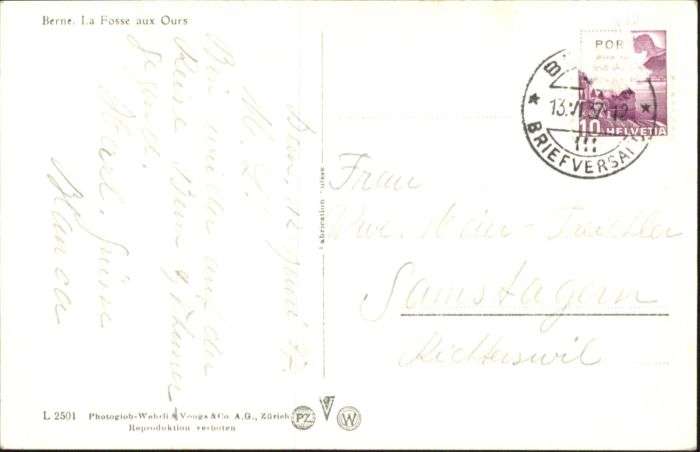 Berne. La Fosse aux Ours
Bern, 12 Juni 37.
M. L.!
Bin wieder auf der
Reise. Bern g
Herzl. Grüsse
Blanca
Fabrication Suisse
POR
13.VI.37-12
BRIEFVERSAND
10 HELVETIA
Frau
Wwe.
Samstagern
Richterswil
L 2501 Photoglob-Wehrli & Vouga & Co A.G., Zürich PZ V W
Reproduktion verboten